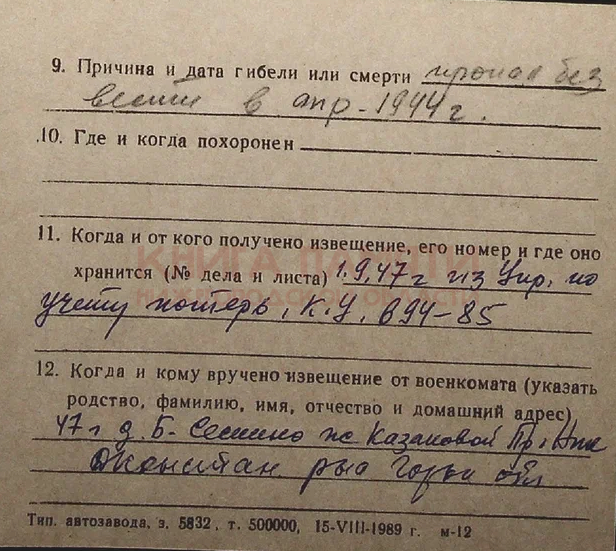 9. Причина и дата гибели или смерти пропал без
вести в апр-1944 г.
10. Где и когда похоронен
11. Когда и от кого получено извещение, его номер и где оно
хранится (№ дела и листа) 1.9.47 г из Упр. по
учету потерь, К.У. 694-85
КНИГА ПАМЯТИ
12. Когда и кому вручено извещение от военкомата (указать
родство, фамилию, имя, отчество и домашний адрес)
47 г д. Б- Сескино ж Казаковой Пр. Ник
рна Горьк обл
Тип. автозавода, з. 5832, т. 500000, 15-VIII-1989 г. м-12